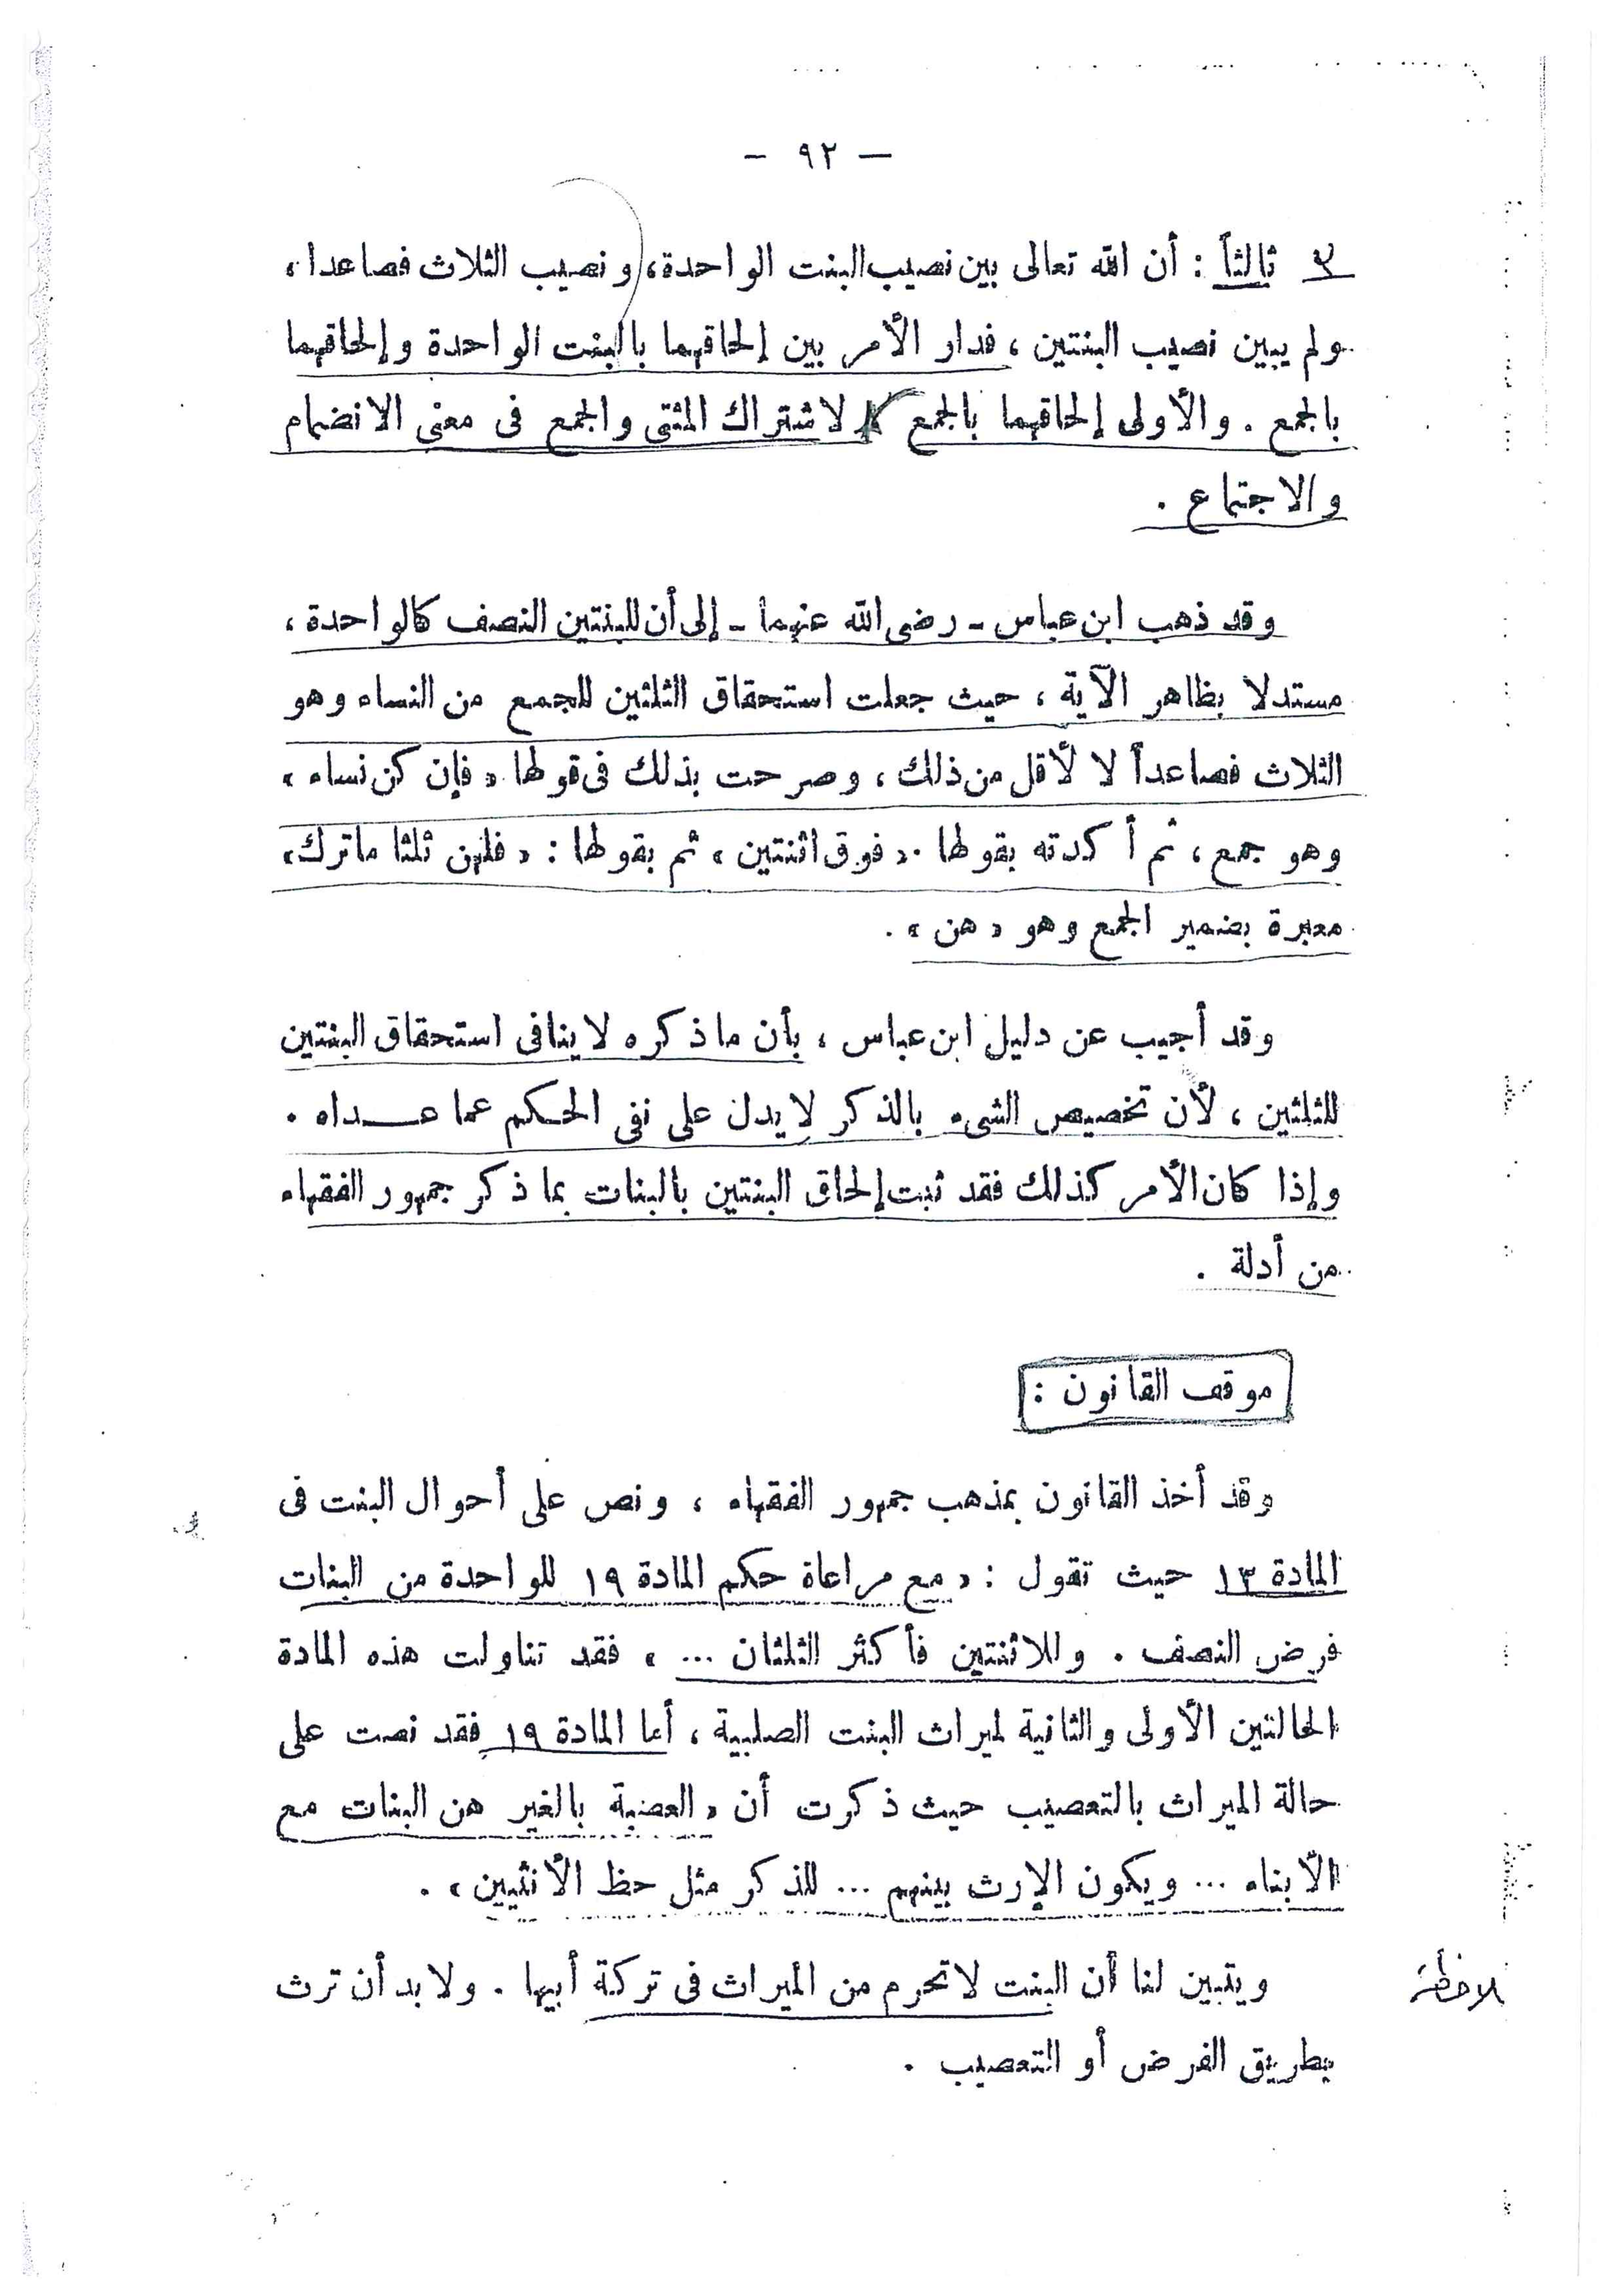 — ٩٢ —
٣ ثالثاً : أن الله تعالى بين نصيب البنت الواحدة، ونصيب الثلاث فصاعدا،
ولم يبين نصيب البنتين ، فدار الأمر بين إلحاقهما بالبنت الواحدة وإلحاقهما
بالجمع . والأولى إلحاقهما بالجمع لاشتراك المثنى والجمع فى معنى الانضمام
والاجتماع .
وقد ذهب ابن عباس - رضى الله عنهما - إلى أن للبنتين النصف كالواحدة ،
مستدلا بظاهر الآية ، حيث جعلت استحقاق الثلثين للجمع من النساء وهو
الثلاث فصاعداً لا لأقل من ذلك ، وصرحت بذلك فى قولها « فإن كن نساء »
وهو جمع ، ثم أكدته بقولها . « فوق اثنتين » ثم بقولها : « فلهن ثلثا ماترك »
معبرة بضمير الجمع وهو « هن » .
وقد أجيب عن دليل ابن عباس ، بأن ماذكره لاينافى استحقاق البنتين
للثلثين ، لأن تخصيص الشىء بالذكر لا يدل على نفى الحكم عما عـداه .
وإذا كان الأمر كذلك فقد ثبت إلحاق البنتين بالبنات بما ذكر جمهور الفقهاء
من أدلة .
موقف القانون :
وقد أخذ القانون بمذهب جمهور الفقهاء ، ونص على أحوال البنت فى
المادة ١٣ حيث تقول : « مع مراعاة حكم المادة ١٩ للواحدة من البنات
فرض النصف . وللاثنتين فأكثر الثلثان ... » فقد تناولت هذه المادة
الحالتين الأولى والثانية لميراث البنت الصلبية ، أما المادة ١٩ فقد نصت على
حالة الميراث بالتعصيب حيث ذكرت أن « العصبة بالغير هن البنات مع
الأبناء ... ويكون الإرث بينهم ... للذكر مثل حظ الأنثيين » .
ويتبين لنا أن البنت لاتحرم من الميراث فى تركة أبيها . ولا بد أن ترث
بطريق الفرض أو التعصيب .